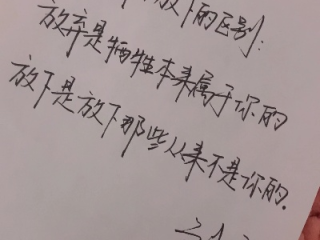 放下的区别:
放弃是牺牲本来属于你的
放下是放下那些从来不是你的.